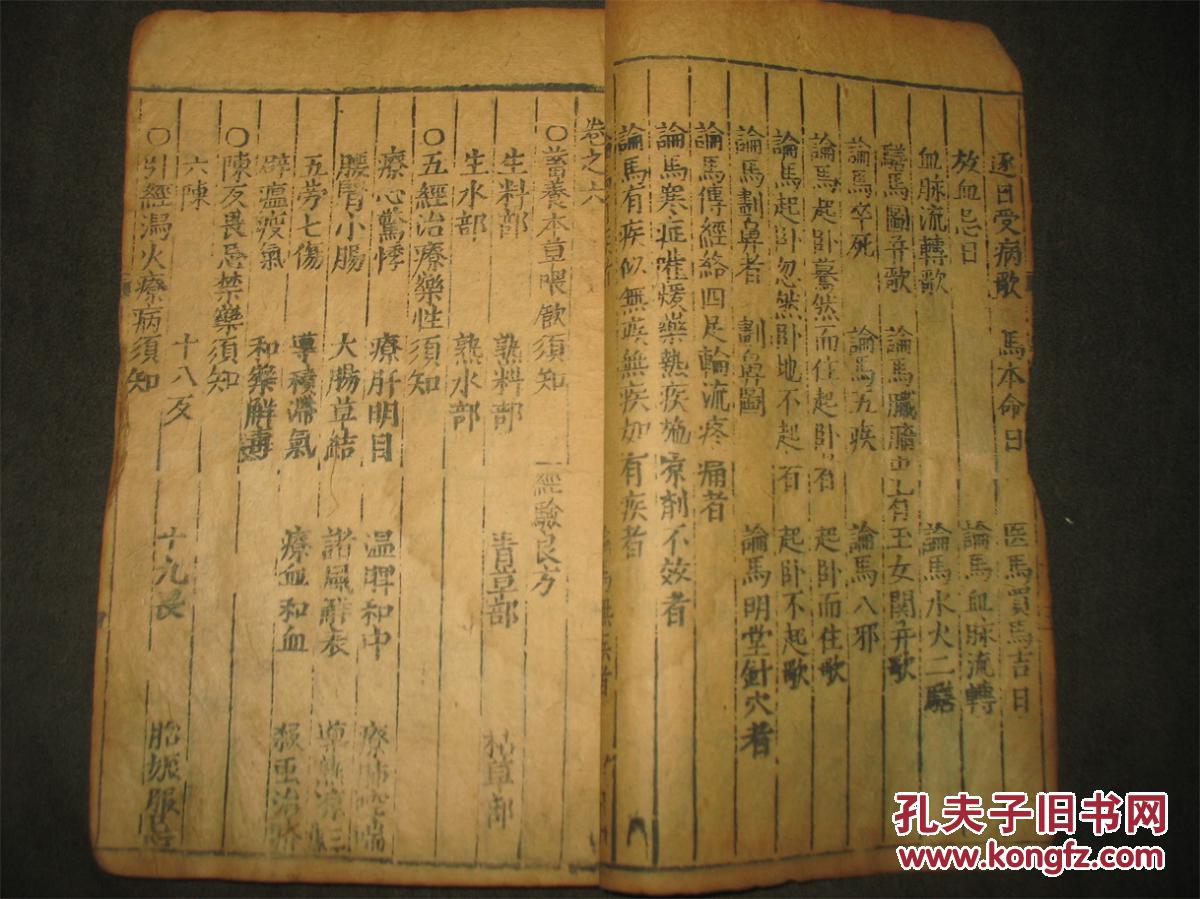 逐日受病歌　馬本命日　医馬買馬吉日
放血忌日　論馬血脉流轉
血脉流轉歌　論馬水火二騸
騸馬圖并歌　論馬臟 有王女関并歌
論馬卒死　論馬五疾　論馬八邪
論馬起卧驀然而住起卧者　起卧而住歌
論馬起卧忽然卧地不起者　起卧不起歌
論馬劃鼻者　劃鼻圖　論馬明堂針穴者
論馬傳經絡四足輪流疼痛者
論馬寒症唯煖藥熱疾施凉剤不效者
論馬有疾似無疾無疾如有疾者
卷之六
〇畜養本草喂飲須知　一經驗良方
生料部　熟料部　青草部　枯草部
生水部　熟水部
〇五經治療藥性須知
療心驚悸　療肝明目　温脾和中　療肺喘
腰腎小腸　大腸草結　諸風解表　三
五劳七傷　導積滯氣　療血和血　殺虫治
辟瘟疫氣　和藥解毒
〇陳反畏忌禁藥須知
六陳　十八反　十九畏　胎娠服忌
〇引經瀉火療病須知
孔夫子旧书网
www.kongfz.com